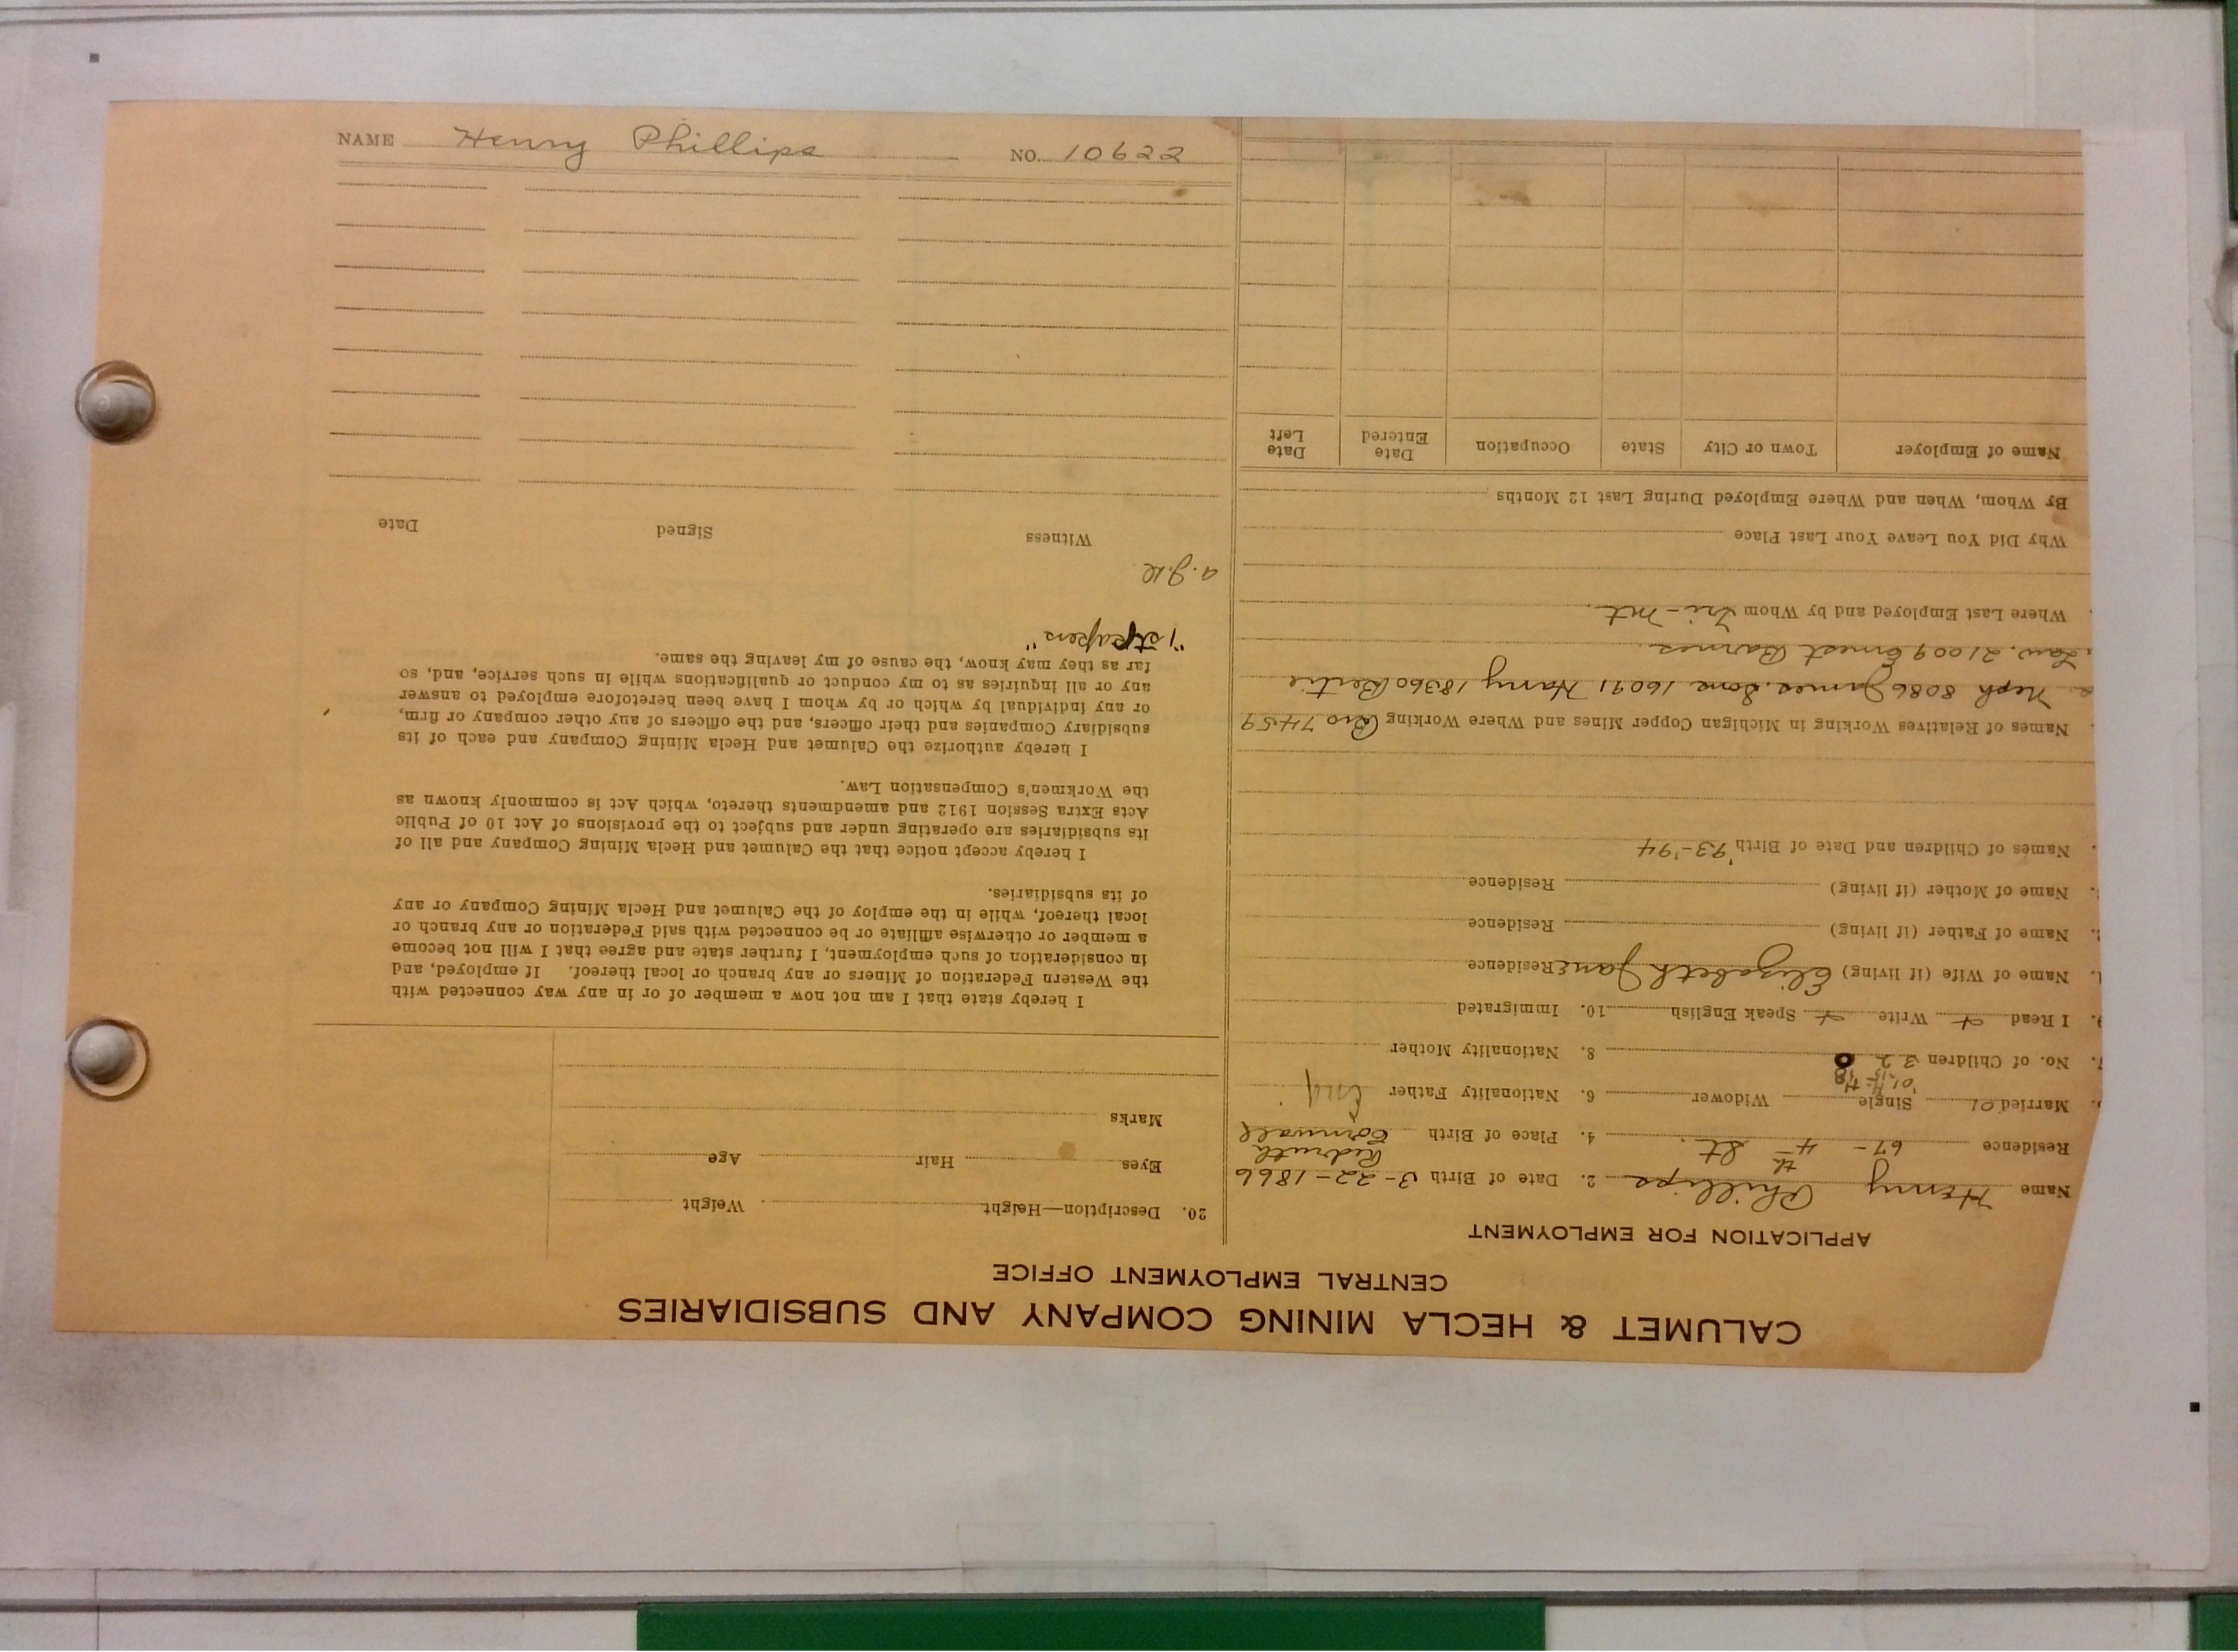 NAME Henry Phillips NO. 10622
CALUMET & HECLA MINING COMPANY AND SUBSIDIARIES
CENTRAL EMPLOYMENT OFFICE
APPLICATION FOR EMPLOYMENT
Name Henry Phillips 2. Date of Birth 3-22-1866
Residence 67- 4th St. 4. Place of Birth Redruth Cornwall
Married 01 Single Widower 6. Nationality Father Eng
7. No. of Children 3 2 8. Nationality Mother
9. I Read Write Speak English 10. Immigrated
1. Name of Wife (if living) Elizabeth Jane Residence
2. Name of Father (if living) Residence
Name of Mother (if living) Residence
Names of Children and Date of Birth '93-'94
Names of Relatives Working in Michigan Copper Mines and Where Working Bro 7459
Neph 8086 James. Sons 16091 Harry 18360 Bertie
Law. 21009 Ernest Barnes.
Where Last Employed and by Whom Tri-Mt.
Why Did You Leave Your Last Place
By Whom, When and Where Employed During Last 12 Months
Name of Employer Town or City State Occupation Date Entered Date Left
20. Description—Height Weight
Eyes Hair Age
Marks
I hereby state that I am not now a member of or in any way connected with
the Western Federation of Miners or any branch or local thereof. If employed, and
in consideration of such employment, I further state and agree that I will not become
a member or otherwise affiliate or be connected with said Federation or any branch or
local thereof, while in the employ of the Calumet and Hecla Mining Company or any
of its subsidiaries.
I hereby accept notice that the Calumet and Hecla Mining Company and all of
its subsidiaries are operating under and subject to the provisions of Act 10 of Public
Acts Extra Session 1912 and amendments thereto, which Act is commonly known as
the Workmen's Compensation Law.
I hereby authorize the Calumet and Hecla Mining Company and each of its
subsidiary Companies and their officers, and the officers of any other company or firm,
or any individual by which or by whom I have been heretofore employed to answer
any or all inquiries as to my conduct or qualifications while in such service, and, so
far as they may know, the cause of my leaving the same.
"1st papers"
Witness Signed Date